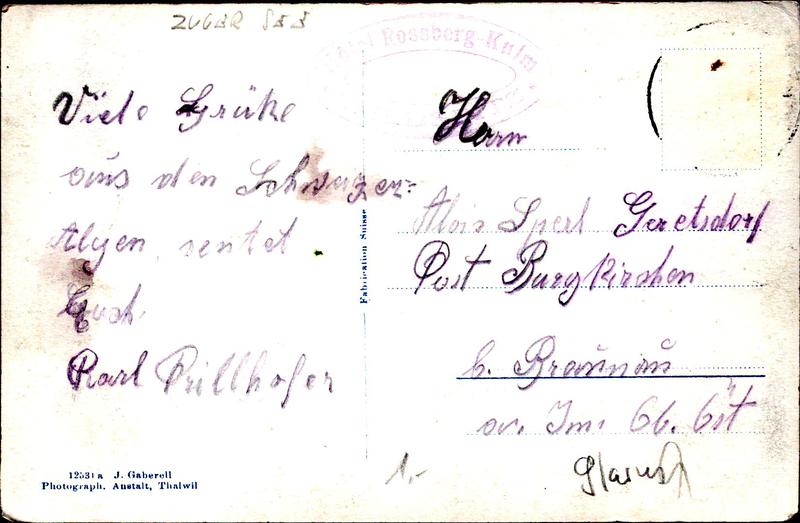 ZUGER SEE
Hotel Rossberg-Kulm
Viele Grüße
aus den Schweizer=
Alpen sentet
Euch.
Karl Prillhofer
Herrn
Alois Sperl Geretsdorf
Post Burgkirchen
b. Braunau
a. Inn Ob. Öst
Fabrication Suisse
12531 a J. Gaberell
Photograph. Anstalt, Thalwil
1.-
Glarus